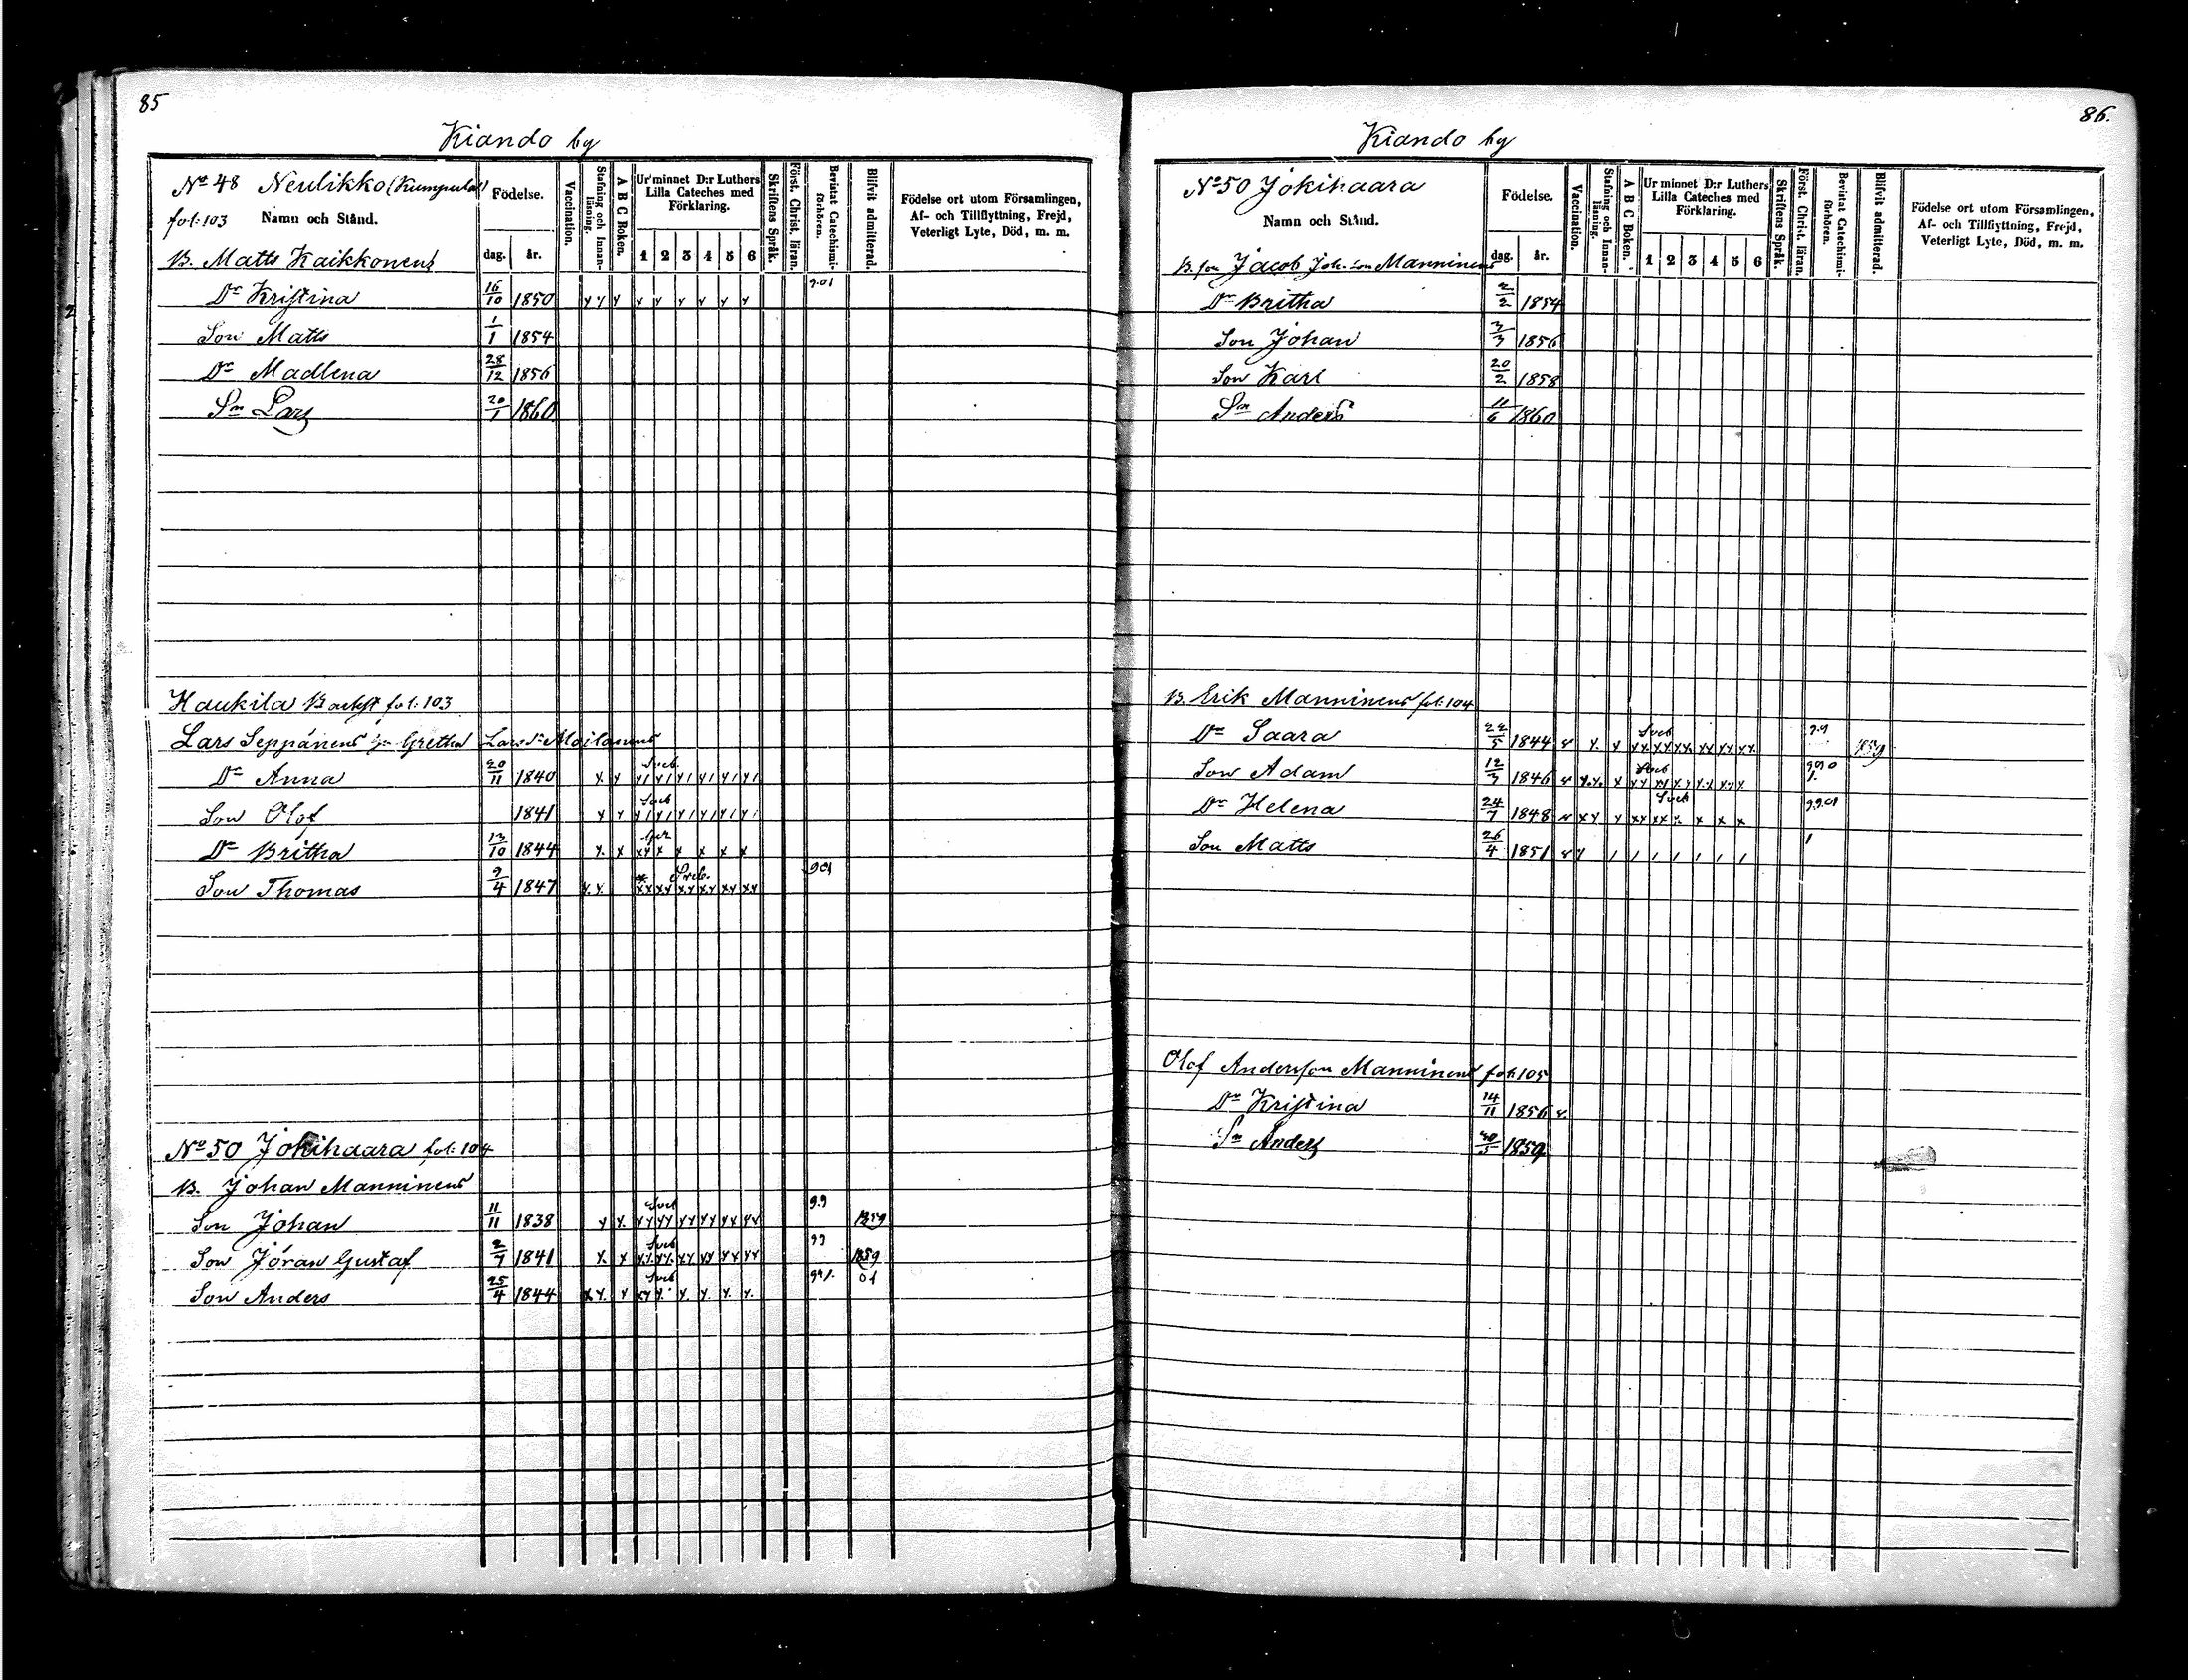 85
Kiando by
No 48 Neulikko (Kumpula)
fol: 103 Namn och Stånd.
Födelse.
dag. år.
Vaccination.
Stafning och Innanläsning.
A B C Boken.
Ur minnet D:r Luthers Lilla Cateches med Förklaring.
1 2 3 4 5 6
Skriftens Språk.
Först. Christ. läran.
Bevistat Catechismiförhören.
Blifvit admitterad.
Födelse ort utom Församlingen,
Af- och Tillflyttning, Frejd,
Veterligt Lyte, Död, m. m.
B. Matts Kaikkonens
Dr Kristina 16/10 1850
Son Matts 1/1 1854
Dr Madlena 28/12 1856
Sn Lars 20/1 1860
Haukila fol: 103
Lars Seppänens Gretha Lars Dr Moilanens
Dr Anna 20/11 1840
Son Olof 1841
Dr Britha 13/10 1844
Son Thomas 9/4 1847
No 50 Jokihaara fol: 104
B. Johan Manninens
Son Johan 11/11 1838 1859
Son Jöran Gustaf 2/7 1841 1859
Son Anders 25/4 1844
86.
Kiando by
No 50 Jokihaara
Namn och Stånd.
Födelse.
dag. år.
Vaccination.
Stafning och Innanläsning.
A B C Boken.
Ur minnet D:r Luthers Lilla Cateches med Förklaring.
1 2 3 4 5 6
Skriftens Språk.
Först. Christ. läran.
Bevistat Catechismiförhören.
Blifvit admitterad.
Födelse ort utom Församlingen,
Af- och Tillflyttning, Frejd,
Veterligt Lyte, Död, m. m.
B. son Jacob Joh. son Manninens
Dr Britha 2/2 1854
Son Johan 3/3 1856
Son Karl 20/2 1858
Sn Anders 11/6 1860
B. Erik Manninens fol: 104
Dr Saara 22/5 1844 1859
Son Adam 12/3 1846
Dr Helena 24/7 1848
Son Matts 26/4 1851
Olof Andersson Manninens fol: 105
Dr Kristina 14/11 1856
Sn Anders 1859